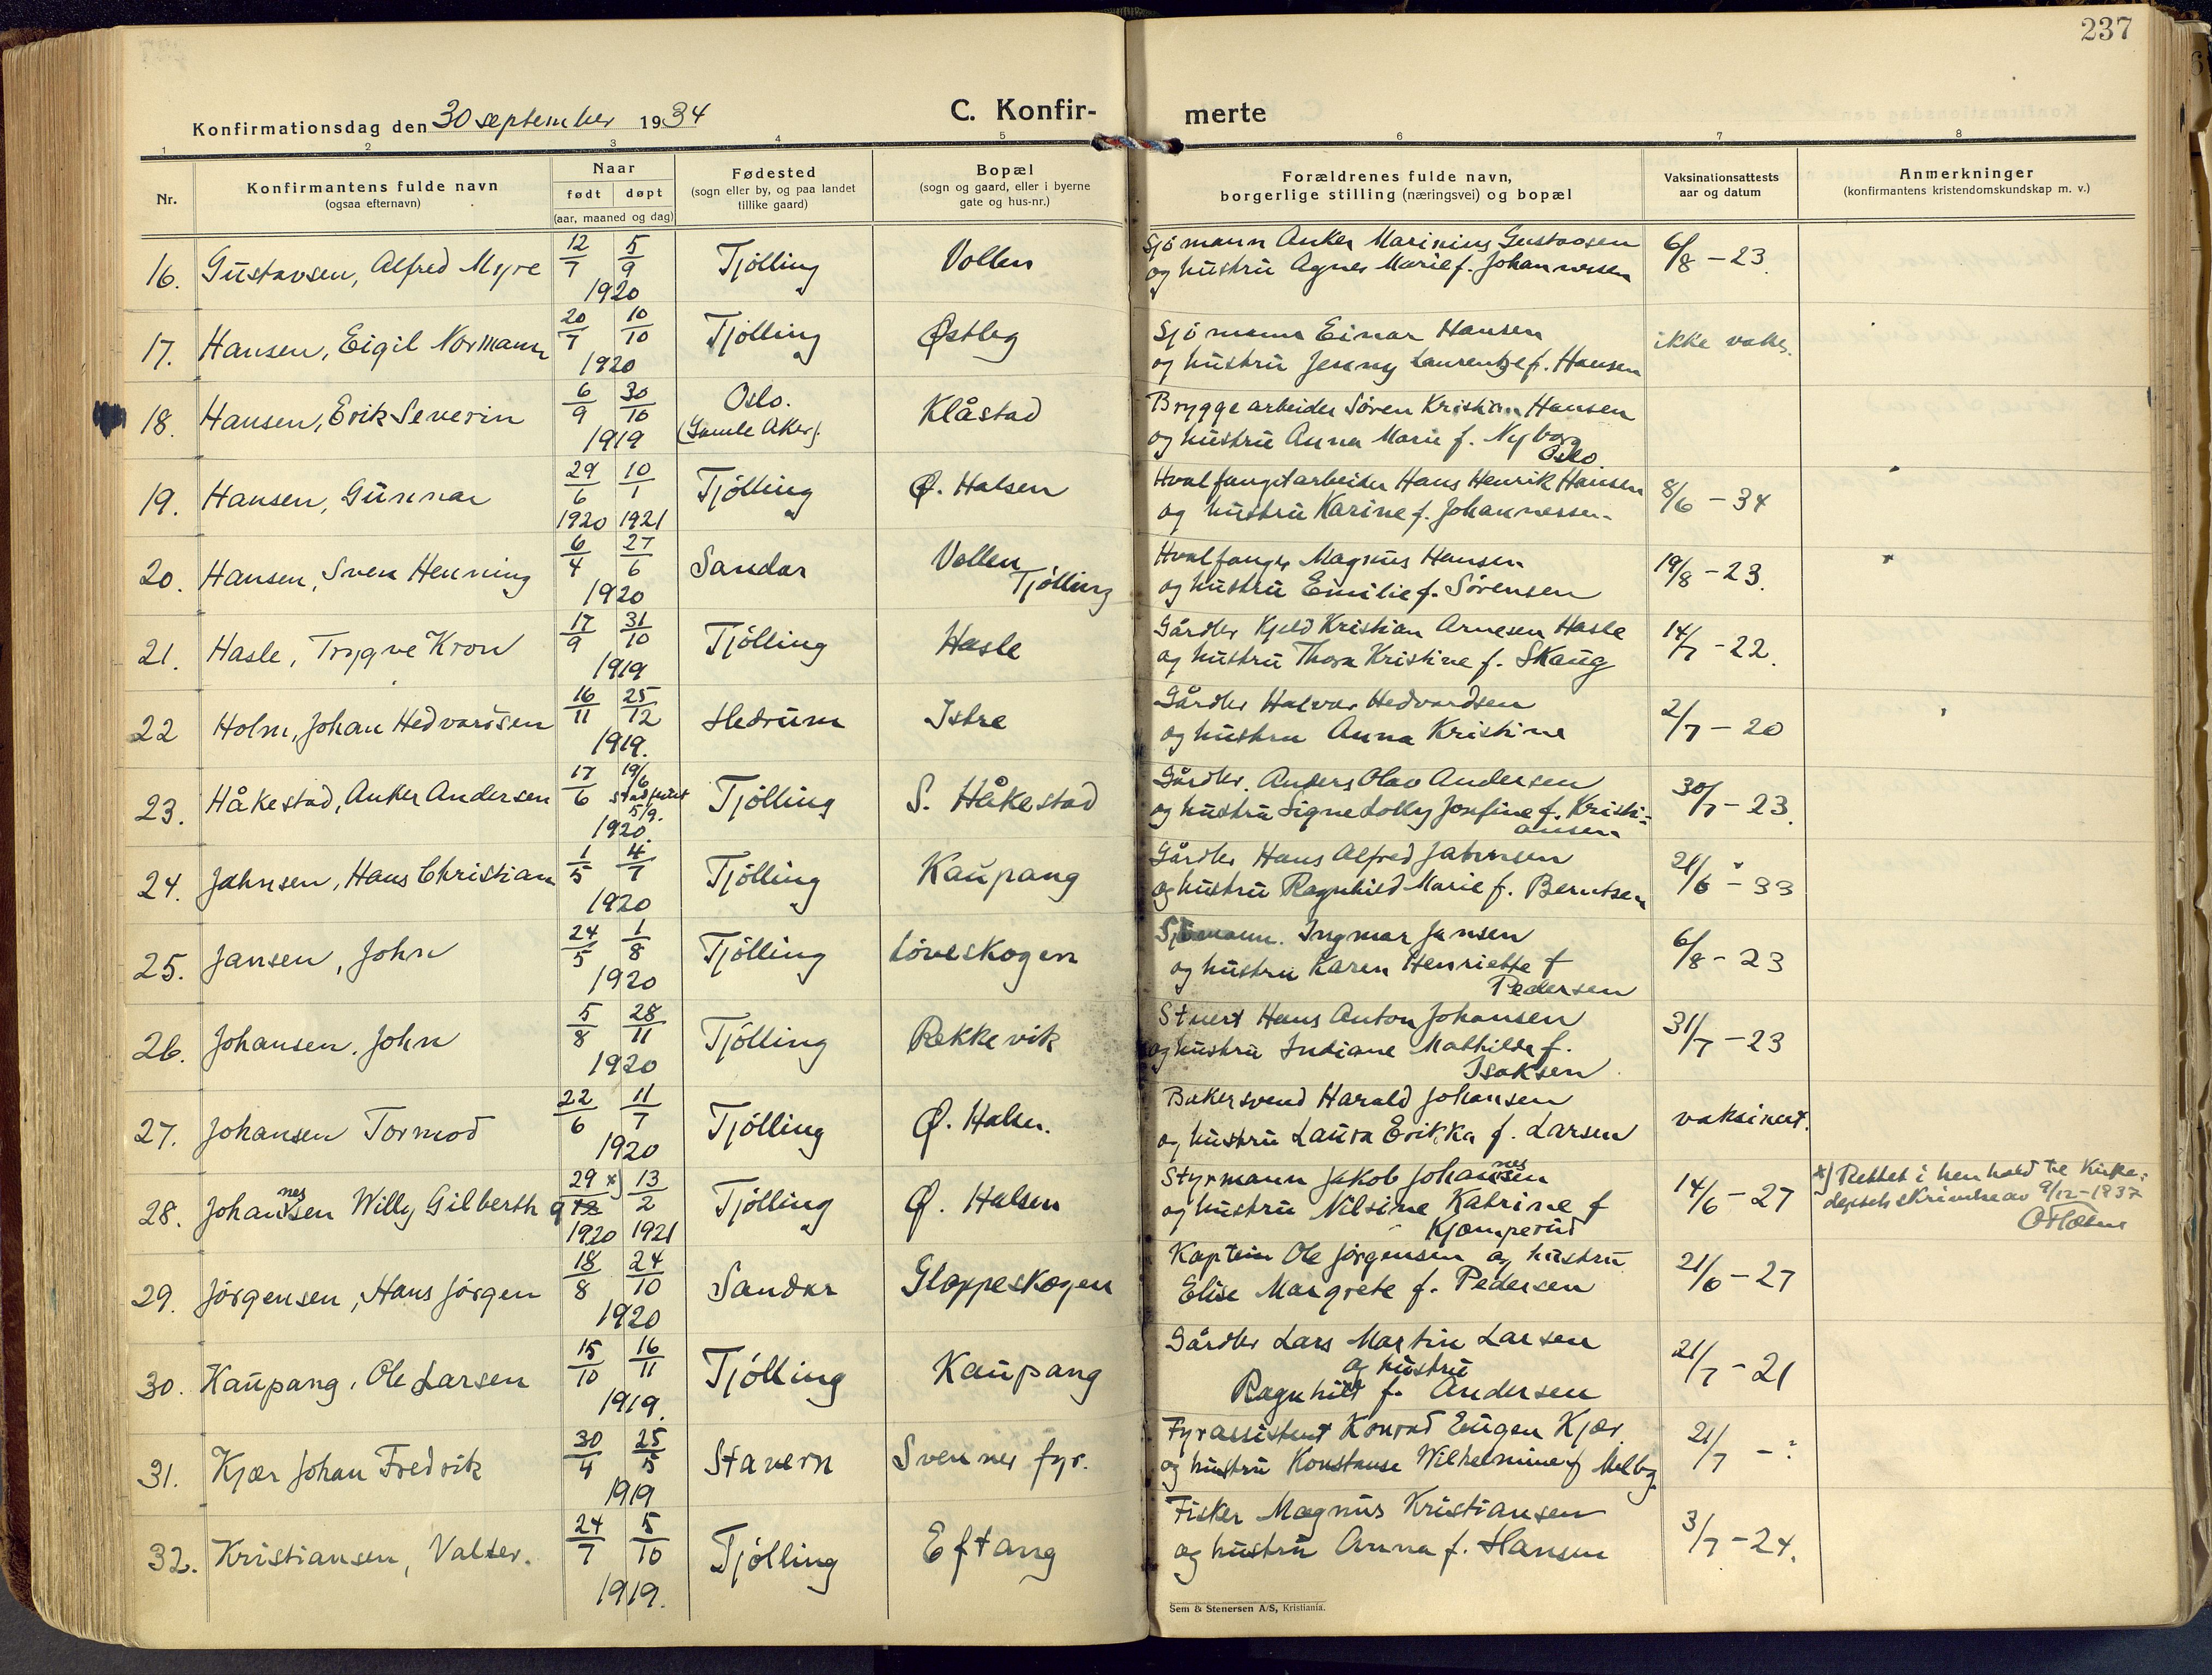 237
Konfirmationsdag den 30 september 1934
C. Konfir- merte
1 2 3 4 5 6 7 8
Nr.
Konfirmantens fulde navn
(ogsaa efternavn)
Naar
født døpt
(aar, maaned og dag)
Fødested
(sogn eller by, og paa landet
tillike gaard)
Bopæl
(sogn og gaard, eller i byerne
gate og hus-nr.)
Forældrenes fulde navn,
borgerlige stilling (næringsvei) og bopæl
Vaksinationsattests
aar og datum
Anmerkninger
(konfirmantens kristendomskundskap m. v.)
16. Gustavsen, Alfred Myre 12/7 5/9 1920 Tjølling Vollen
Sjømann Anker Marinius Gustavsen
og hustru Agnes Marie f. Johannessen
6/8 - 23.
17. Hansen, Eigil Normann 20/7 10/10 1920 Tjølling Østby
Sjømann Einar Hansen
og hustru Jenny Laurentze f. Hansen
ikke vaks.
18. Hansen, Erik Severin 6/9 30/10 1919 Oslo. (Gamle Aker). Klåstad
Bryggearbeider Søren Kristian Hansen
og hustru Anna Marie f. Nyborg
Oslo
19. Hansen, Gunnar 29/6 1920 10/1 1921 Tjølling Ø. Halsen
Hvalfangstarbeider Hans Henrik Hansen
og hustru Karine f. Johannessen
8/6 - 34
20. Hansen, Sven Henning 6/4 27/6 1920 Sandar Vollen Tjølling
Hvalfanger Magnus Hansen
og hustru Emilie f. Sørensen
19/8 - 23.
21. Hasle, Trygve Kron 17/9 31/10 1919 Tjølling Hasle
Gårdbr Kjeld Kristian Arnesen Hasle
og hustru Thora Kristine f. Skaug
14/7 - 22.
22 Holm, Johan Hedvardsen 16/11 25/12 1919. Hedrum Istre
Gårdbr Halvor Hedvardsen
og hustru Anna Kristine
2/7 - 20
23. Håkestad, Anker Andersen 17/6 19/6 stadfestet 5/9. 1920. Tjølling S. Håkestad
Gårdbr. Anders Olav Andersen
og hustru Signe Lolly Josefine f. Kristi-
ansen
30/7 - 23.
24. Jahnsen, Hans Christian 1/5 4/7 1920 Tjølling Kaupang
Gårdbr Hans Alfred Jahnsen
og hustru Ragnhild Marie f. Berntsen
21/6 - 33
25. Jansen, John 24/5 1/8 1920 Tjølling Løveskogen
Sjømann. Ingmar Jansen
og hustru Karen Henriette f
Pedersen
6/8 - 23
26. Johansen. John 5/8 28/11 1920 Tjølling Rekkevik
Stuert Hans Anton Johansen
og hustru Indiane Mathilde f.
Isaksen
31/7 - 23
27. Johansen Tormod 22/6 11/7 1920 Tjølling Ø. Halsen.
Bakersvend Harald Johansen
og hustru Laura Erikka f. Larsen
vaksinert.
28. Johannessen Willy Gilberth 29/9 x) 1920 13/2 1921 Tjølling Ø. Halsen
Styrmann Jakob Johannessen
og hustru Nilsine Katrine f
Kjomperud
14/6 - 27
x) Rettet i henhold til Kirke-
depts skrivelse av 9/12-1937
29. Jørgensen, Hans Jørgen 18/8 24/10 1920 Sandar Gloppeskogen
Kaptein Ole Jørgensen og hustru
Elise Margrete f. Pedersen
21/6 - 27
30. Kaupang, Ole Larsen 15/10 16/11 1919. Tjølling Kaupang
Gårdbr Lars Martin Larsen
og hustru
Ragnhild f. Andersen
21/7 - 21
31. Kjær Johan Fredrik 30/4 25/5 1919 Stavern Svenner fyr.
Fyrassistent Konrad Eugen Kjær
og hustru Konstanse Wilhelmine f Melby.
21/7 - ?
32. Kristiansen, Valter. 24/7 5/10 1919. Tjølling Eftang
Fisker Magnus Kristiansen
og hustru Anna f. Hansen
3/7 - 24.
Sem & Stenersen A/S, Kristiania.